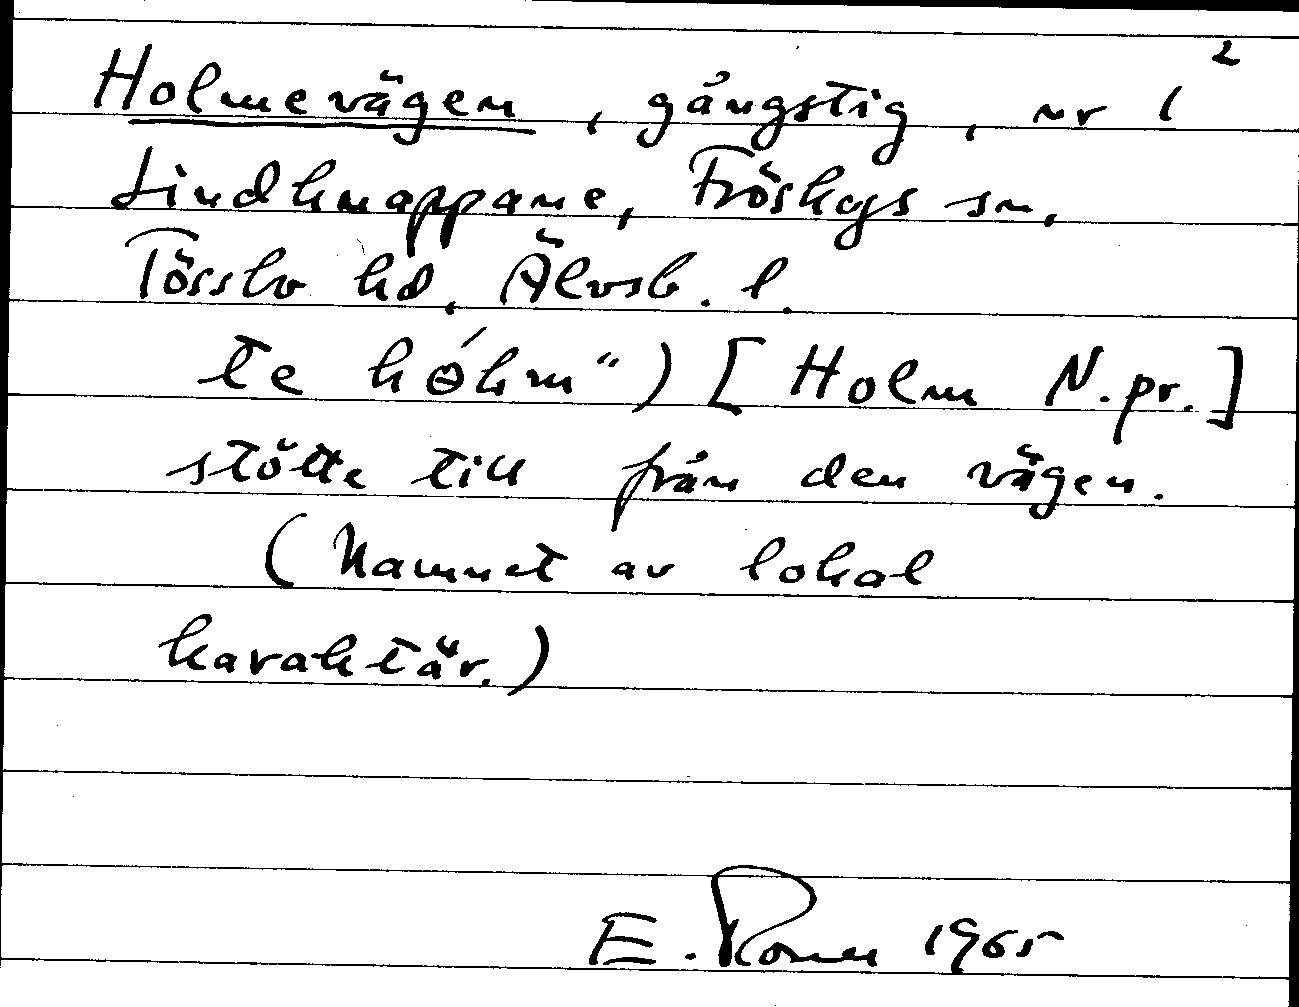 2
Holmevägen, gångstig, nr 1
Lindknappane, Fröskogs sn,
Tössbo hd, Älvsb. l.
te hɵ́hm") [Holm N.pr.]
stötte till från den vägen.
(Namnet av lokal
karaktär.)
E. 1965